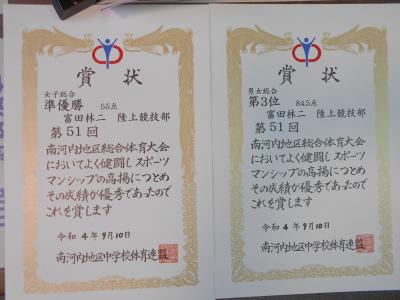 賞状
女子総合
準優勝 55点
富田林二 陸上競技部
第51回
南河内地区総合体育大会
においてよく健闘しスポーツ
マンシップの高揚につとめ
その成績が優秀であったので
これを賞します
令和4年9月10日
南河内地区中学校体育連盟
賞状
男女総合
第3位 84.5点
富田林二 陸上競技部
第51回
南河内地区総合体育大会
においてよく健闘しスポーツ
マンシップの高揚につとめ
その成績が優秀であったので
これを賞します
令和4年9月10日
南河内地区中学校体育連盟